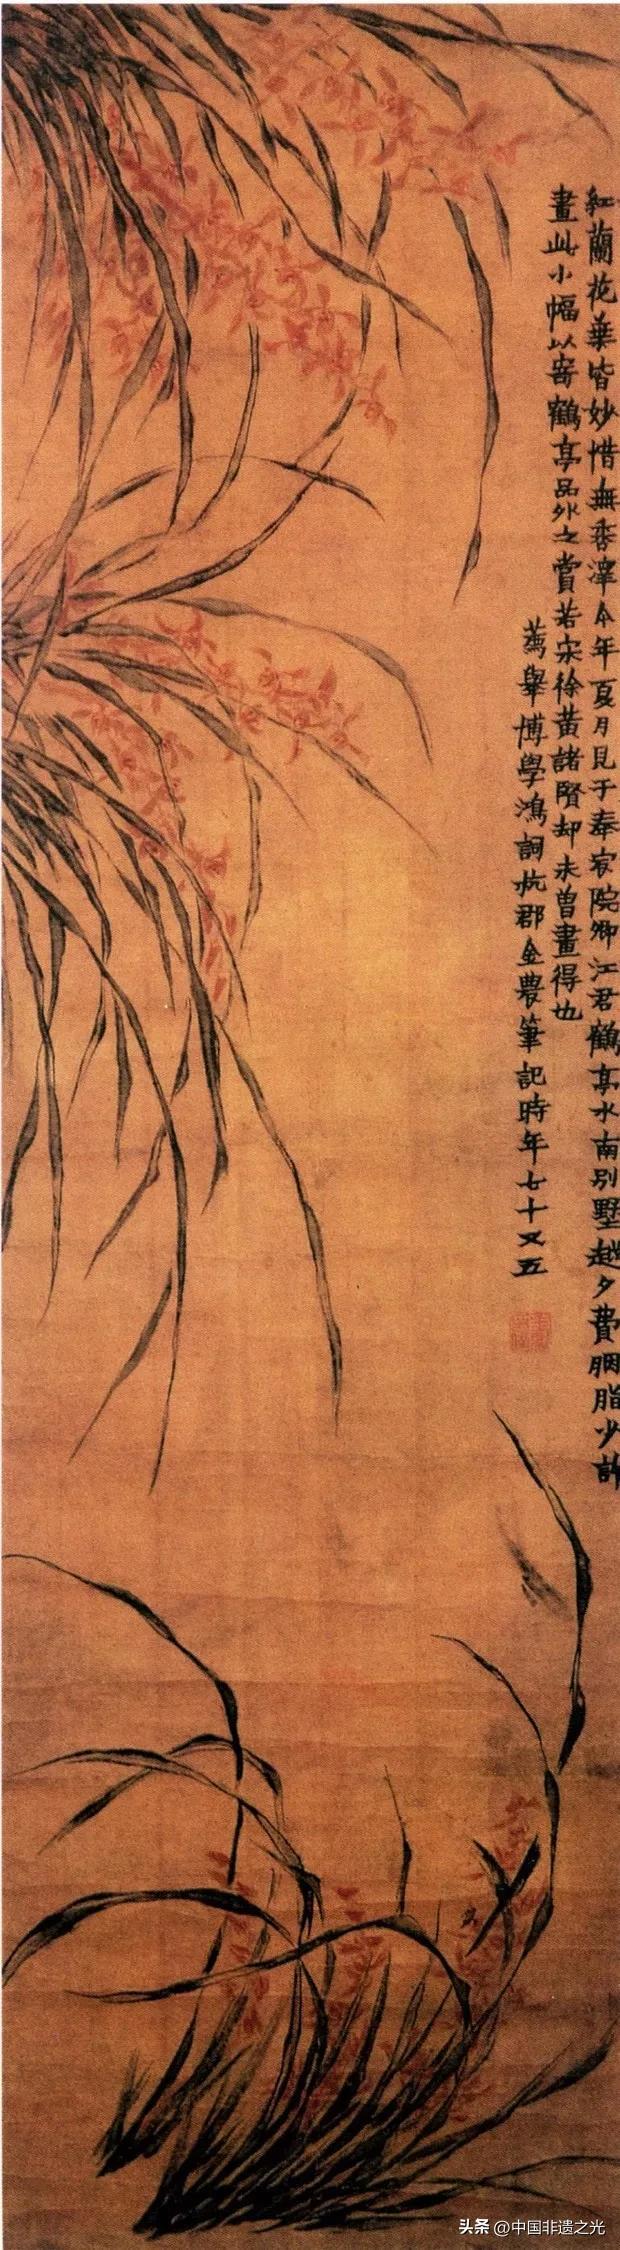 紅蘭花葉皆妙惜無香澤今年夏月見于奉宸院卿江君鶴亭水南別墅越夕費胭脂少許
畫此小幅以寄鶴亭品外之賞若宋徐黃諸賢却未曾畫得也
薦舉博學鴻詞杭郡金農筆記時年七十又五
头条 @中国非遗之光